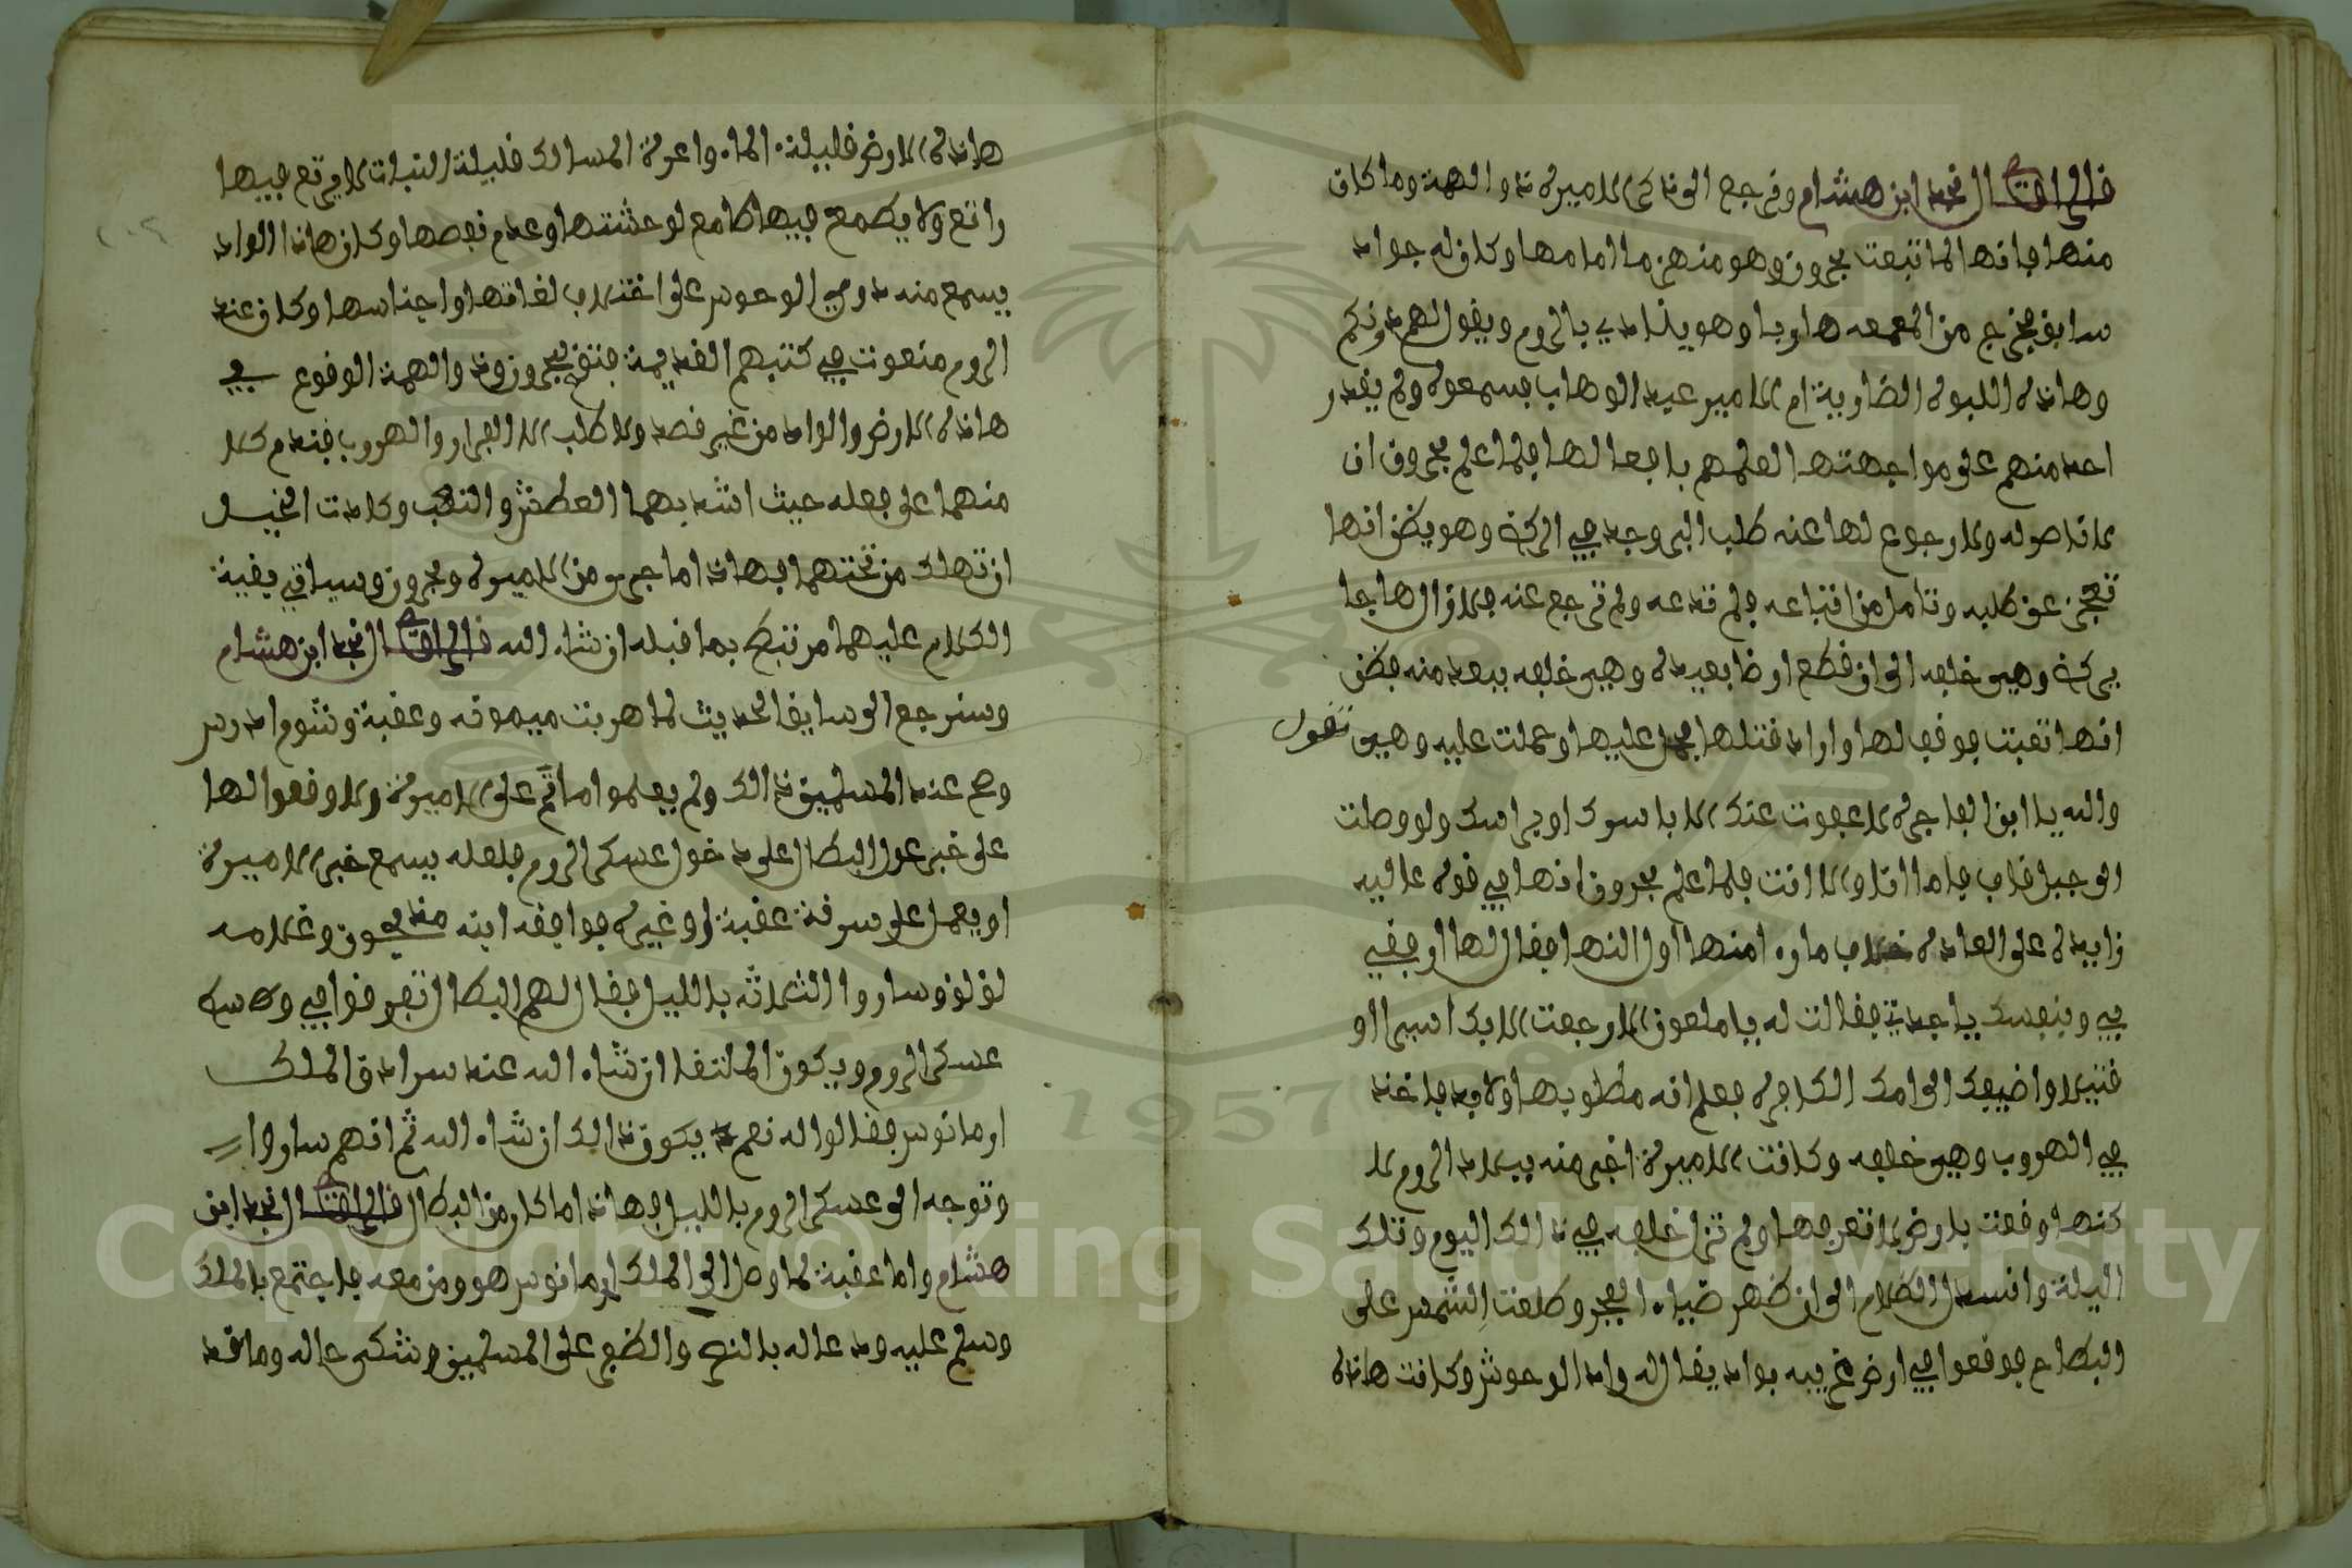 قال الراوي النجد ابن هشام ونرجع الى ذكر الاميرة ذو الهمة وما كان
منها فانها لما تبعت بحرون وهو منهزما امامها وكان له جواد
سابق فخرج من المعمعه هاربا وهو ينادي بالروم ويقول لهم دونكم
وهاذه اللبوه الضارية ام الامير عبد الوهاب فسمعوه ولم يقدر
احد منهم على مواجهتها لعلمهم بافعالها فلما علم بحرون ان
لا ناصر له ولا رجوع لها عنه طلب البر وجد في الركض وهو يظن انها
تعجز عن طلبه وتامل من اتباعه فلم تدعه ولم ترجع عنه فلازال هاربا
يركض وهي خلفه الى ان قطع ارضا بعيدة وهي خلفه ببعد منه فظن
انها تعبت فوقف لها واراد قتلها فحمل عليها وحملت عليه وهي تقول
والله يا ابن الفاجرة لا عفوت عنك الا باسرك او براسك ولو وصلت
الى جبل قاف فاما انا والا انت فلما علم بحرون انها في قوة عاليه
زايدة على العادة خلاف ماراه منها اول النهار فقال لها ارفقي
بي وبنفسك يا جدية فقالت له يا ملعون لا رجعت الا بك اسيرا او
قتيلا واضيفك الى امك الكافرة فعلم انه مطلوبها ولا بد فاخذ
في الهروب وهي خلفه وكانت الاميرة اخبر منه ببلاد الروم لا
كنها وقعت بارض لا تعرفها ولم تزل خلفه في ذالك اليوم وتلك
اليلة وانسدل الظلام الى ان ظهر ضياء الفجر وطلعت الشمس على
البطاح فوقعوا في ارض غريبه بواد يقال له واد الوحوش وكانت هاذه
هاذه الارض قليلة الماء واعرة المسالك قليلة النبات لا يرتع فيها
راتع ولا يطمع فيها طامع لوحشتها وعدم نفعها وكان هاذا الواد
يسمع منه دوي الوحوش على اختلاف لغاتها واجناسها وكان عند
الروم منعوت في كتبهم القديمة فتفق بحرون وذو الهمة الوقوع في
هاذه الارض والواد من غير قصد ولا طلب الا الفرار والهروب فندم كلا
منهما على فعله حيث اشتد بهما العطش والتعب وكادت الخيل
ان تهلك من تحتهما فهاذا ما جرى من الاميرة وبحرون وسياتي بقية
الكلام عليهما مرتبط بما قبله ان شاء الله قال الراوي النجد ابن هشام
وسنرجع الى سايق الحديث لما هربت ميمونه وعقبة وشومادرس
وصح عند المسلمين ذالك ولم يعلموا ما تم على الاميرة ولا وقعوا لها
على خبر عول البطال على دخول عسكر الروم فلعله يسمع خبر الاميرة
او يعمل على سرقة عقبة او غيره فوافقه ابنه مذبحون وغلامه
لؤلؤ وساروا الثلاثه بالليل فقال لهم البطال تفرقوا في وسط
عسكر الروم ويكون الملتقا ان شاء الله عند سرادق الملك
ارمانوس فقالوا له نعم يكون ذالك ان شاء الله ثم انهم ساروا
وتوجه الى عسكر الروم بالليل فهاذا ما كان من البطال قال الراوي النجد ابن
هشام واما عقبة لما وصل الى الملك ارمانوس هو ومن معه فاجتمع بالملك
وسلم عليه ودعا له بالنصر والظفر على المسلمين وشكى حاله وما قد